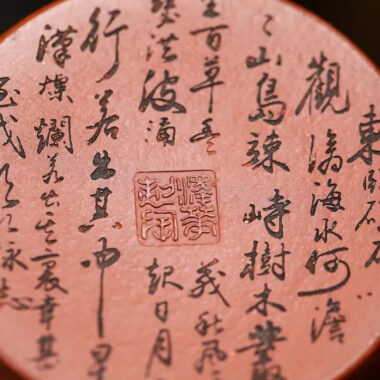 東臨碣石
觀滄海水何澹
々山島竦峙樹木叢
生百草豐茂秋風
瑟洪波涌起日月
行若出其中星
漢燦爛若出其裏幸甚
至哉歌以詠志